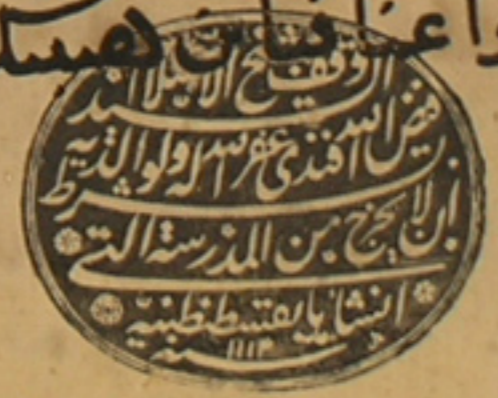 وقف شيخ الاسلام
السيد
فيض الله افندى غفر الله له ولوالديه
بشرط
ان لا يخرج من المدرسة التى
انشاها بقسطنطينية
سنة ١١١٣